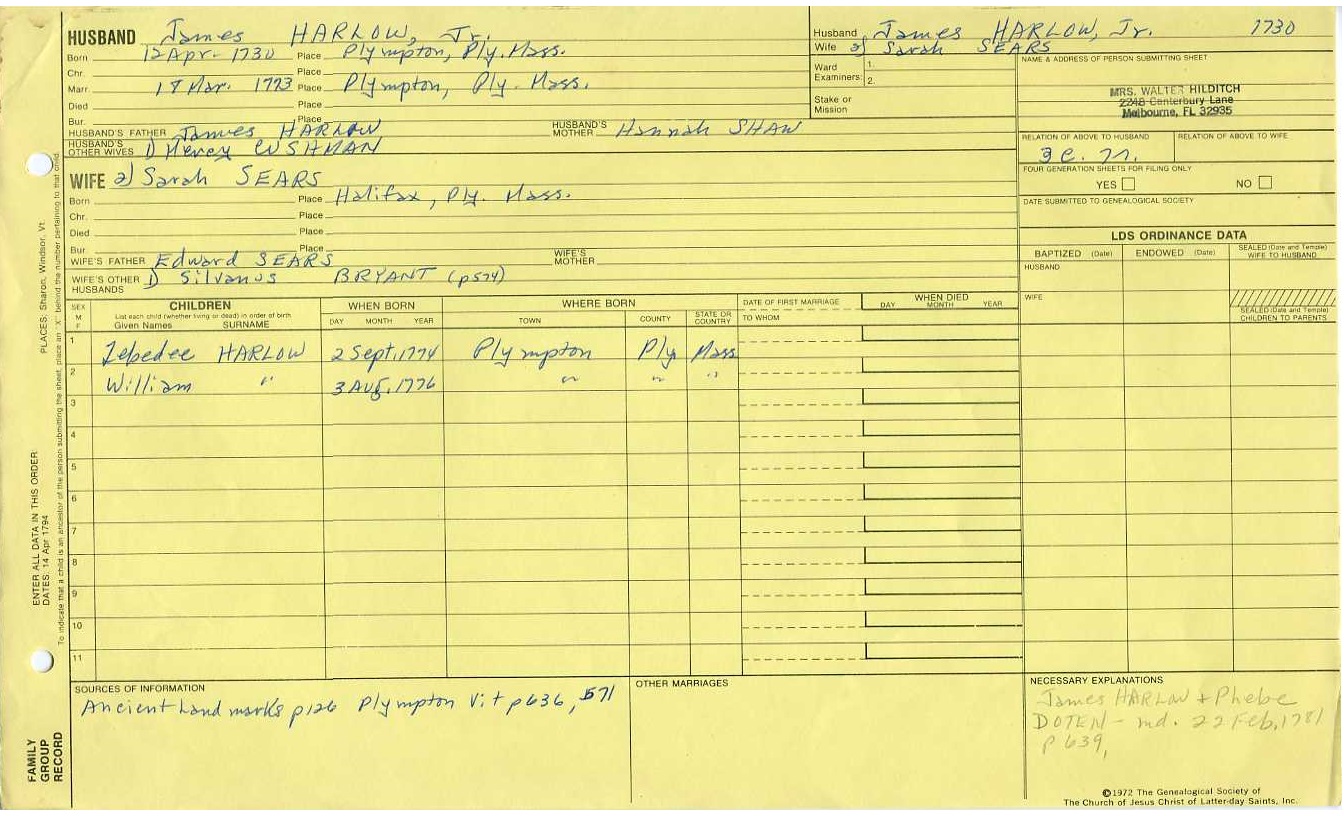 HUSBAND James HARLOW, Jr.
Born 12 Apr - 1730 Place Plympton, Ply. Mass.
Chr. Place
Marr. 18 Mar. 1773 Place Plympton, Ply. Mass.
Died Place
Bur. Place
HUSBAND'S FATHER James HARLOW HUSBAND'S MOTHER Hannah SHAW
HUSBAND'S OTHER WIVES 1) Mercy CUSHMAN
WIFE 2) Sarah SEARS
Born Place Halifax, Ply. Mass.
Chr. Place
Died Place
Bur Place
WIFE'S FATHER Edward SEARS WIFE'S MOTHER
WIFE'S OTHER HUSBANDS 1) Silvanus BRYANT (p574)
Husband James HARLOW, Jr. 1730
Wife 2) Sarah SEARS
Ward Examiners: 1. 2.
Stake or Mission
NAME & ADDRESS OF PERSON SUBMITTING SHEET
MRS. WALTER HILDITCH
2248 Canterbury Lane
Melbourne, FL 32935
RELATION OF ABOVE TO HUSBAND RELATION OF ABOVE TO WIFE
FOUR GENERATION SHEETS FOR FILING ONLY
YES NO
DATE SUBMITTED TO GENEALOGICAL SOCIETY
LDS ORDINANCE DATA
BAPTIZED (Date) ENDOWED (Date) SEALED (Date and Temple) WIFE TO HUSBAND
HUSBAND
WIFE
SEALED (Date and Temple) CHILDREN TO PARENTS
SEX M F
CHILDREN
List each child (whether living or dead) in order of birth
Given Names SURNAME
WHEN BORN
DAY MONTH YEAR
WHERE BORN
TOWN COUNTY STATE OR COUNTRY
DATE OF FIRST MARRIAGE
TO WHOM
WHEN DIED
DAY MONTH YEAR
1 Zebedee HARLOW 2 Sept, 1774 Plympton Ply Mass
2 William " 3 Aug, 1776 " " "
3
4
5
6
7
8
9
10
11
SOURCES OF INFORMATION
Ancient Landmarks p126 Plympton Vit p636, 571
OTHER MARRIAGES
NECESSARY EXPLANATIONS
James HARLOW + Phebe
DOTEN - md. 22 Feb, 1781
p 639,
©1972 The Genealogical Society of
The Church of Jesus Christ of Latter-day Saints, Inc.
PLACES: Sharon, Windsor, Vt.
ENTER ALL DATA IN THIS ORDER:
DATES: 14 Apr 1794
To indicate that a child is an ancestor of the person submitting the sheet, place an "X" behind the number pertaining to that child.
FAMILY
GROUP
RECORD